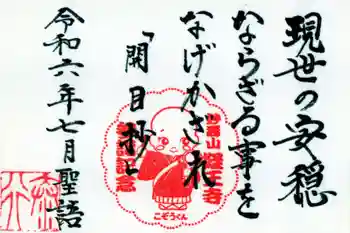 現世の安穏
ならざる事を
なげかざれ
「開目抄」
令和六年七月聖語
こぞうくん